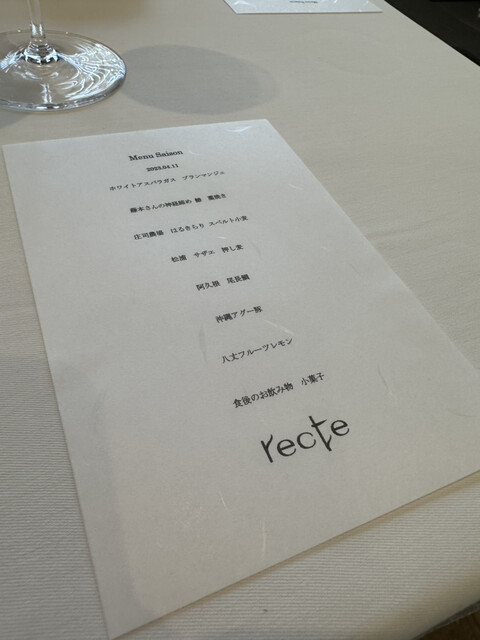 Menu Saison
2023.04.11
ホワイトアスパラガス ブランマンジェ
藤本さんの神経締め 鰆 藁焼き
庄司農場 はるきらり スペルト小麦
松浦 サザエ 押し麦
阿久根 尾長鯛
沖縄アグー豚
八丈フルーツレモン
食後のお飲み物 小菓子
recte